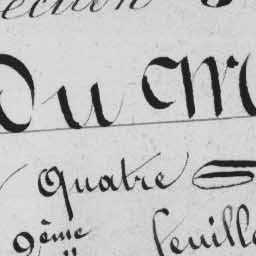 ection
Du M
Quatre =
9ème feuille